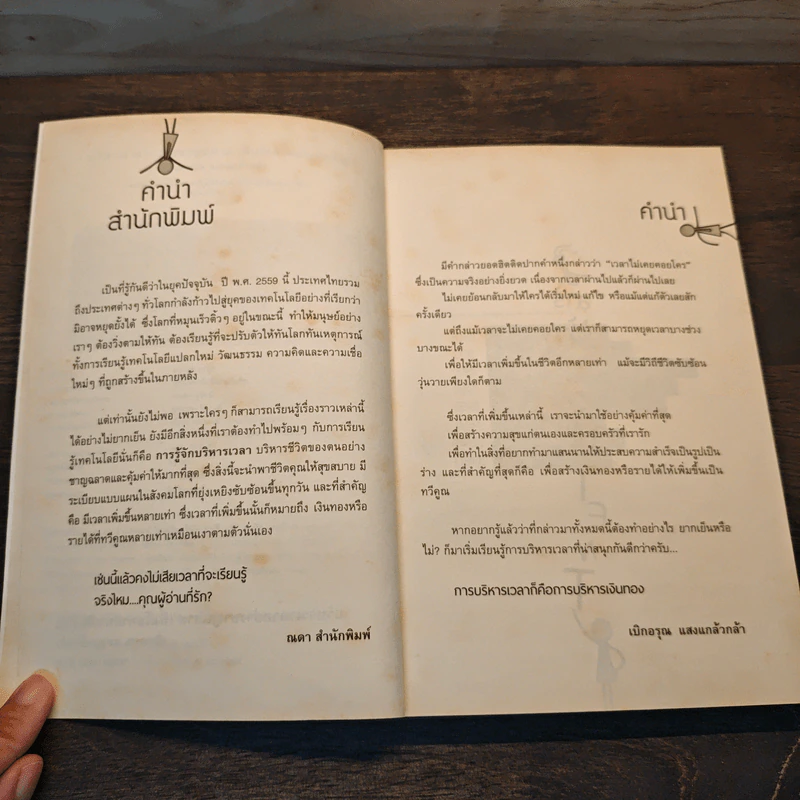 คำนำ
สำนักพิมพ์
เป็นที่รู้กันดีว่าในยุคปัจจุบัน ปี พ.ศ. 2559 นี้ ประเทศไทยรวม
ถึงประเทศต่างๆ ทั่วโลกกำลังก้าวไปสู่ยุคของเทคโนโลยีอย่างที่เรียกว่า
มิอาจหยุดยั้งได้ ซึ่งโลกที่หมุนเร็วติ้วๆ อยู่ในขณะนี้ ทำให้มนุษย์อย่าง
เราๆ ต้องวิ่งตามให้ทัน ต้องเรียนรู้ที่จะปรับตัวให้ทันโลกทันเหตุการณ์
ทั้งการเรียนรู้เทคโนโลยีแปลกใหม่ วัฒนธรรม ความคิดและความเชื่อ
ใหม่ๆ ที่ถูกสร้างขึ้นในภายหลัง
แต่เท่านั้นยังไม่พอ เพราะใครๆ ก็สามารถเรียนรู้เรื่องราวเหล่านี้
ได้อย่างไม่ยากเย็น ยังมีอีกสิ่งหนึ่งที่เราต้องทำไปพร้อมๆ กับการเรียน
รู้เทคโนโลยีนั่นก็คือ การรู้จักบริหารเวลา บริหารชีวิตของตนอย่าง
ชาญฉลาดและคุ้มค่าให้มากที่สุด ซึ่งสิ่งนี้จะนำพาชีวิตคุณให้สุขสบาย มี
ระเบียบแบบแผนในสังคมโลกที่ยุ่งเหยิงซับซ้อนขึ้นทุกวัน และที่สำคัญ
คือ มีเวลาเพิ่มขึ้นหลายเท่า ซึ่งเวลาที่เพิ่มขึ้นนั้นก็หมายถึง เงินทองหรือ
รายได้ที่ทวีคูณหลายเท่าเหมือนเงาตามตัวนั่นเอง
เช่นนี้แล้วคงไม่เสียเวลาที่จะเรียนรู้
จริงไหม....คุณผู้อ่านที่รัก?
ณดา สำนักพิมพ์
คำนำ
มีคำกล่าวยอดฮิตติดปากคำหนึ่งกล่าวว่า "เวลาไม่เคยคอยใคร"
ซึ่งเป็นความจริงอย่างยิ่งยวด เนื่องจากเวลาผ่านไปแล้วก็ผ่านไปเลย
ไม่เคยย้อนกลับมาให้ใครได้เริ่มใหม่ แก้ไข หรือแม้แต่แก้ตัวเลยสัก
ครั้งเดียว
แต่ถึงแม้เวลาจะไม่เคยคอยใคร แต่เราก็สามารถหยุดเวลาบางช่วง
บางขณะได้
เพื่อให้มีเวลาเพิ่มขึ้นในชีวิตอีกหลายเท่า แม้จะมีวิถีชีวิตซับซ้อน
วุ่นวายเพียงใดก็ตาม
ซึ่งเวลาที่เพิ่มขึ้นเหล่านี้ เราจะนำมาใช้อย่างคุ้มค่าที่สุด
เพื่อสร้างความสุขแก่ตนเองและครอบครัวที่เรารัก
เพื่อทำในสิ่งที่อยากทำมาแสนนานให้ประสบความสำเร็จเป็นรูปเป็น
ร่าง และที่สำคัญที่สุดก็คือ เพื่อสร้างเงินทองหรือรายได้ให้เพิ่มขึ้นเป็น
ทวีคูณ
หากอยากรู้แล้วว่าที่กล่าวมาทั้งหมดนี้ต้องทำอย่างไร ยากเย็นหรือ
ไม่? ก็มาเริ่มเรียนรู้การบริหารเวลาที่น่าสนุกกันดีกว่าครับ...
การบริหารเวลาก็คือการบริหารเงินทอง
เบิกอรุณ แสงแกล้วกล้า